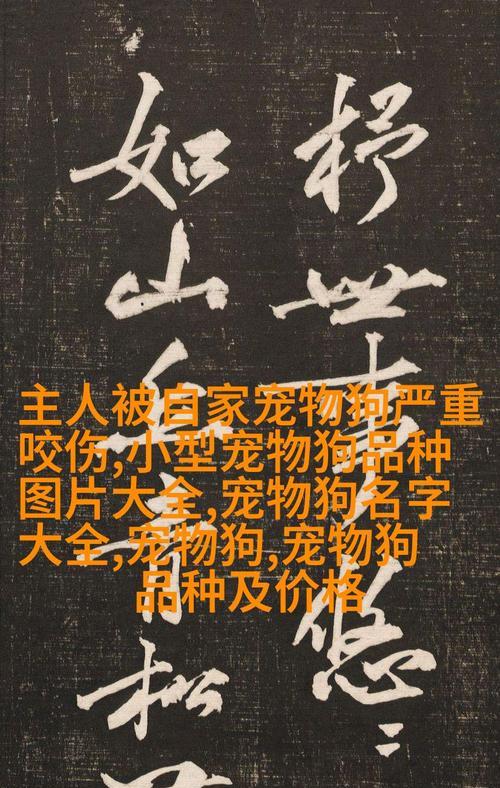 世事悠〻
如山丘青松
主人被自家宠物狗严重
咬伤,小型宠物狗品种
图片大全,宠物狗名字
大全,宠物狗,宠物狗
品种及价格